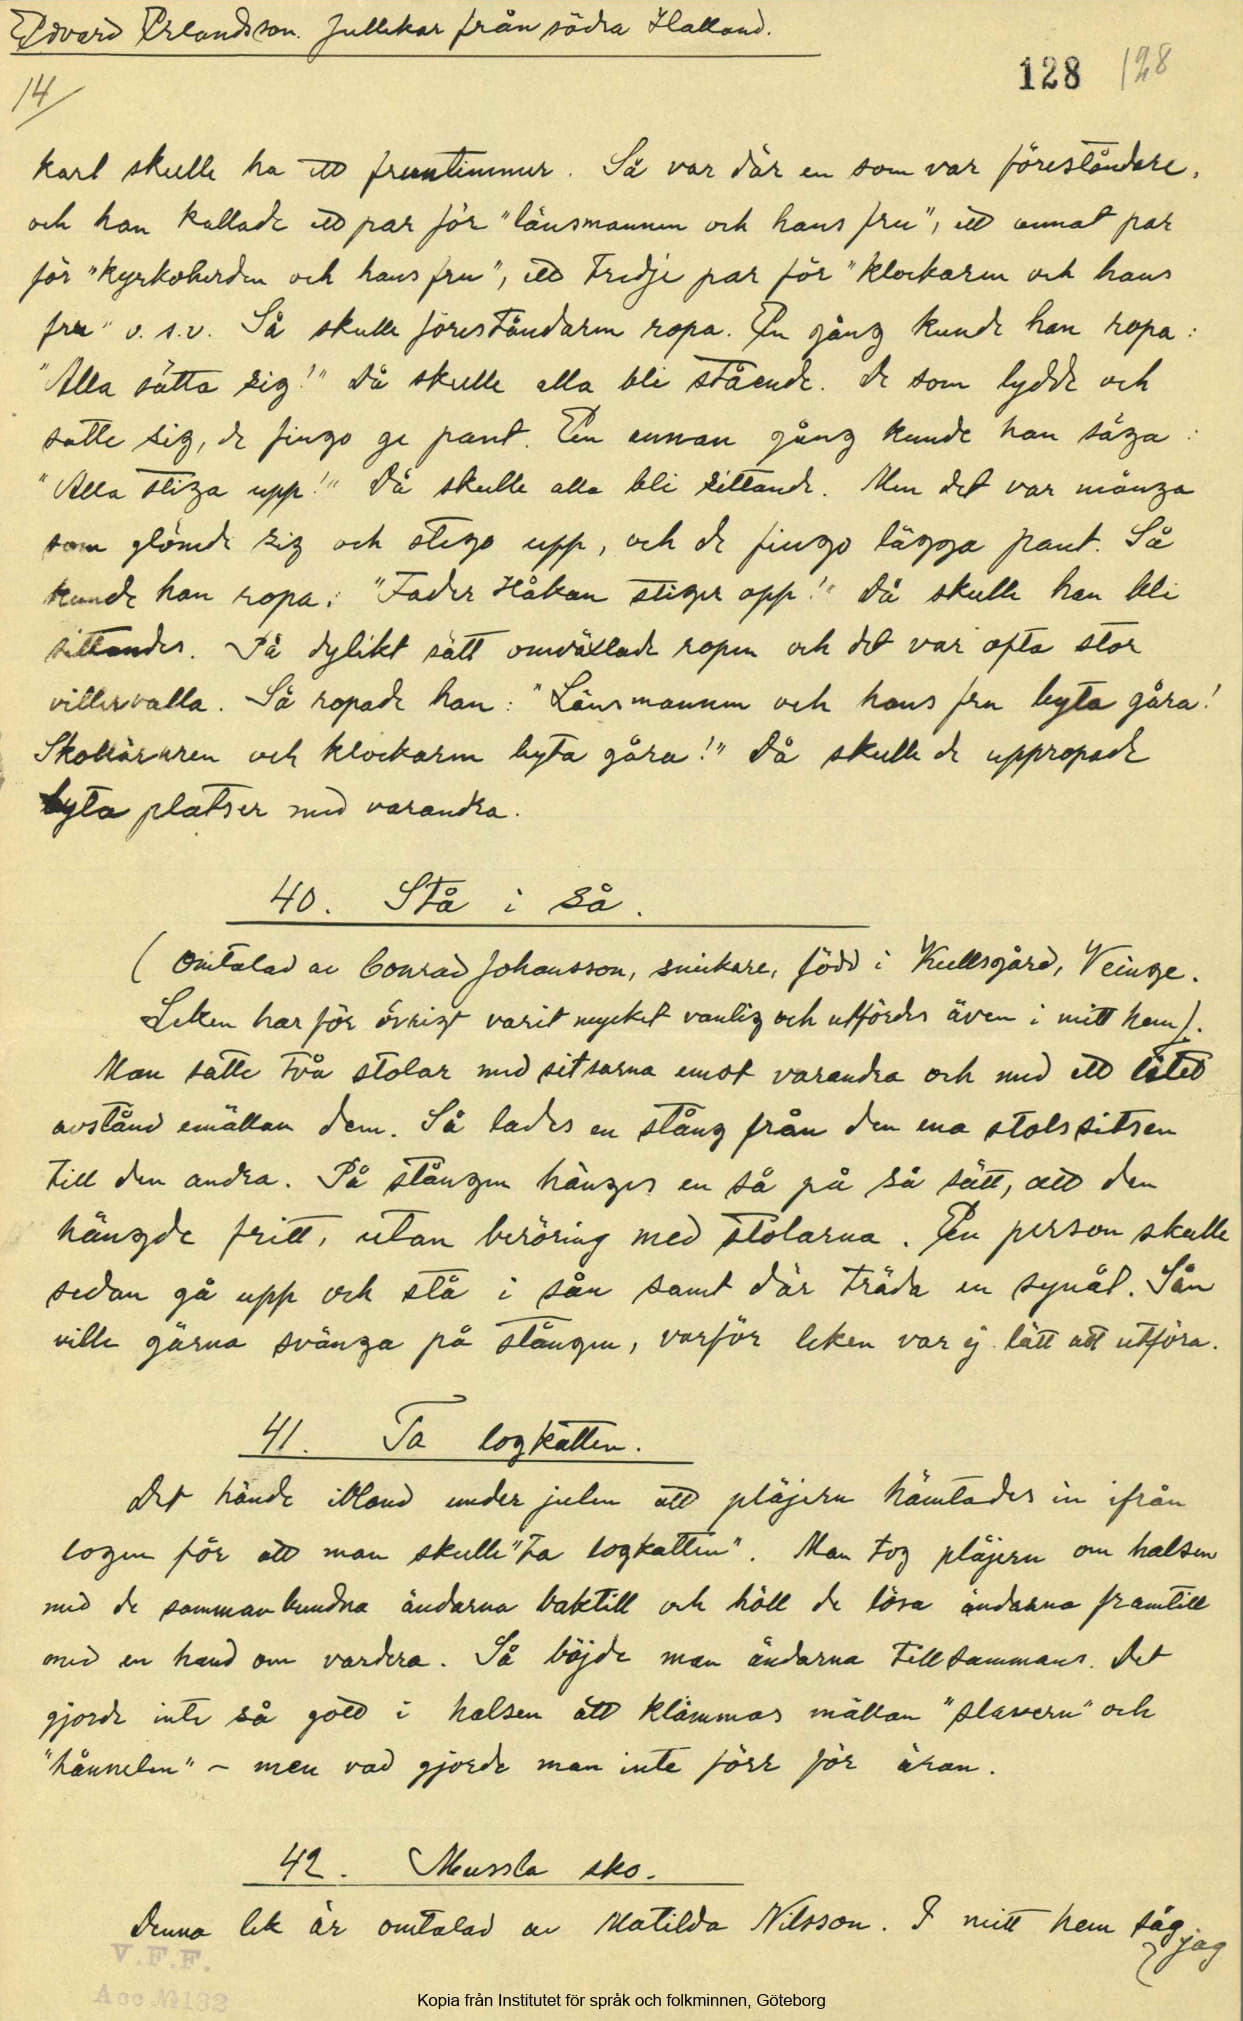 Edvard Erlandsson. Jullekar från södra Halland.
128 128
14/
karl skulle ha ett fruntimmer. Så var där en som var föreståndare,
och han kallade ett par för "länsmannen och hans fru", ett annat par
för "kyrkoherden och hans fru", ett tredje par för "klockaren och hans
fru" o. s. v. Så skulle föreståndaren ropa. En gång kunde han ropa:
"Alla sätta sig!" Då skulle alla bli stående. De som lydde och
satte sig, de fingo ge pant. En annan gång kunde han säga:
"Alla stiga upp!" Då skulle alla bli sittande. Men det var många
som glömde sig och stego upp, och de fingo lägga pant. Så
kunde han ropa: "Fader Håkan stiger opp!" Då skulle han bli
sittandes. På dylikt sätt omväxlade ropen och det var ofta stor
villervalla. Så ropade han: "Länsmannen och hans fru byta gåra!
Skolläraren och klockaren byta gåra!" Då skulle de uppropade
byta platser med varandra.
40. Stå i så.
(Omtalad av Conrad Johansson, snickare, född i Kullsgård, Veinge.
Leken har för övrigt varit mycket vanlig och utfördes även i mitt hem).
Man satte två stolar med sitsarna emot varandra och med ett litet
avstånd emällan dem. Så lades en stång från den ena stolssitsen
till den andra. På stången hänges en så på så sätt, att den
hängde fritt, utan beröring med stolarna. En person skulle
sedan gå upp och stå i sån samt där träda en synål. Sån
ville gärna svänga på stången, varför leken var ej lätt att utföra.
41. Ta logkatten.
Det hände ibland under julen att pläjeru hämtades in ifrån
logen för att man skulle "ta logkatten". Man tog pläjeru om halsen
med de sammanbundna ändarna baktill och höll de lösa ändarna framtill
med en hand om vardera. Så böjde man ändarna tillsammans. Det
gjorde inte så gott i halsen att klämmas mällan "slaveru" och
"hånnelen" – men vad gjorde man inte förr för äran.
42. Mussla sko.
Denna lek är omtalad av Matilda Nilsson. I mitt hem såg
jag
V.F.F.
Acc. № 132
Kopia från Institutet för språk och folkminnen, Göteborg